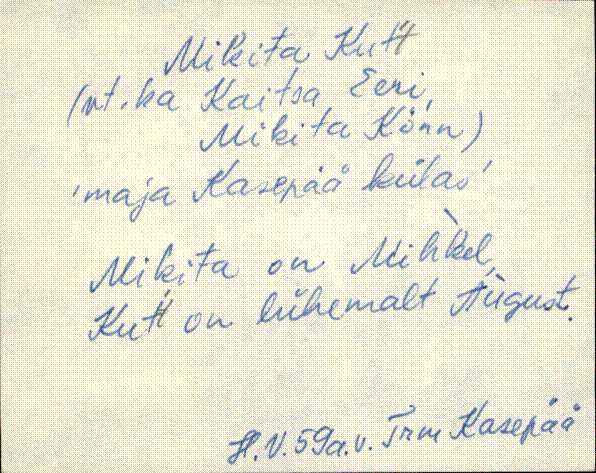 Mikita Kutt
(vt. ka Kaitsa Eeri,
Mikita Könn)
'maja Kasepää külas'
Mikita on Mihkel,
Kutt on lühemalt August.
H. V. 59a. v. Trm Kasepää